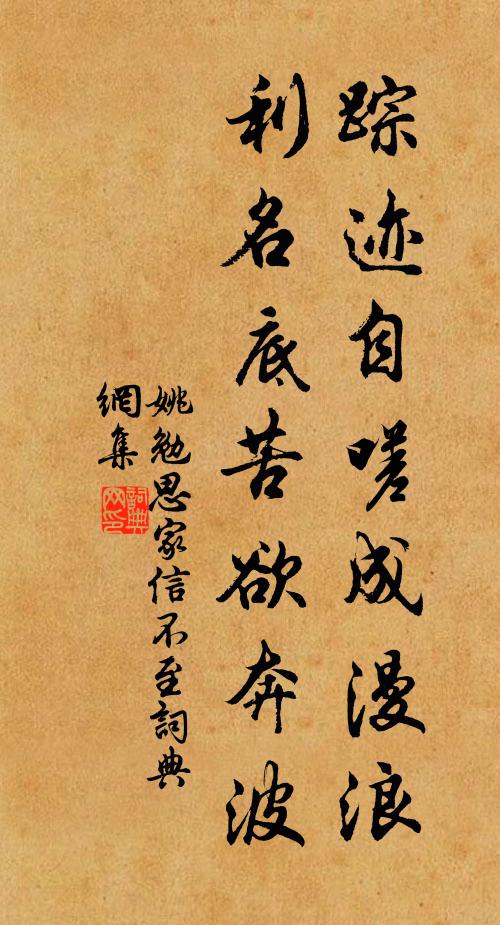 踪迹自嗟成漫浪
利名底苦欲奔波
姚勉思家信不至詞典
網集
詞典
网印